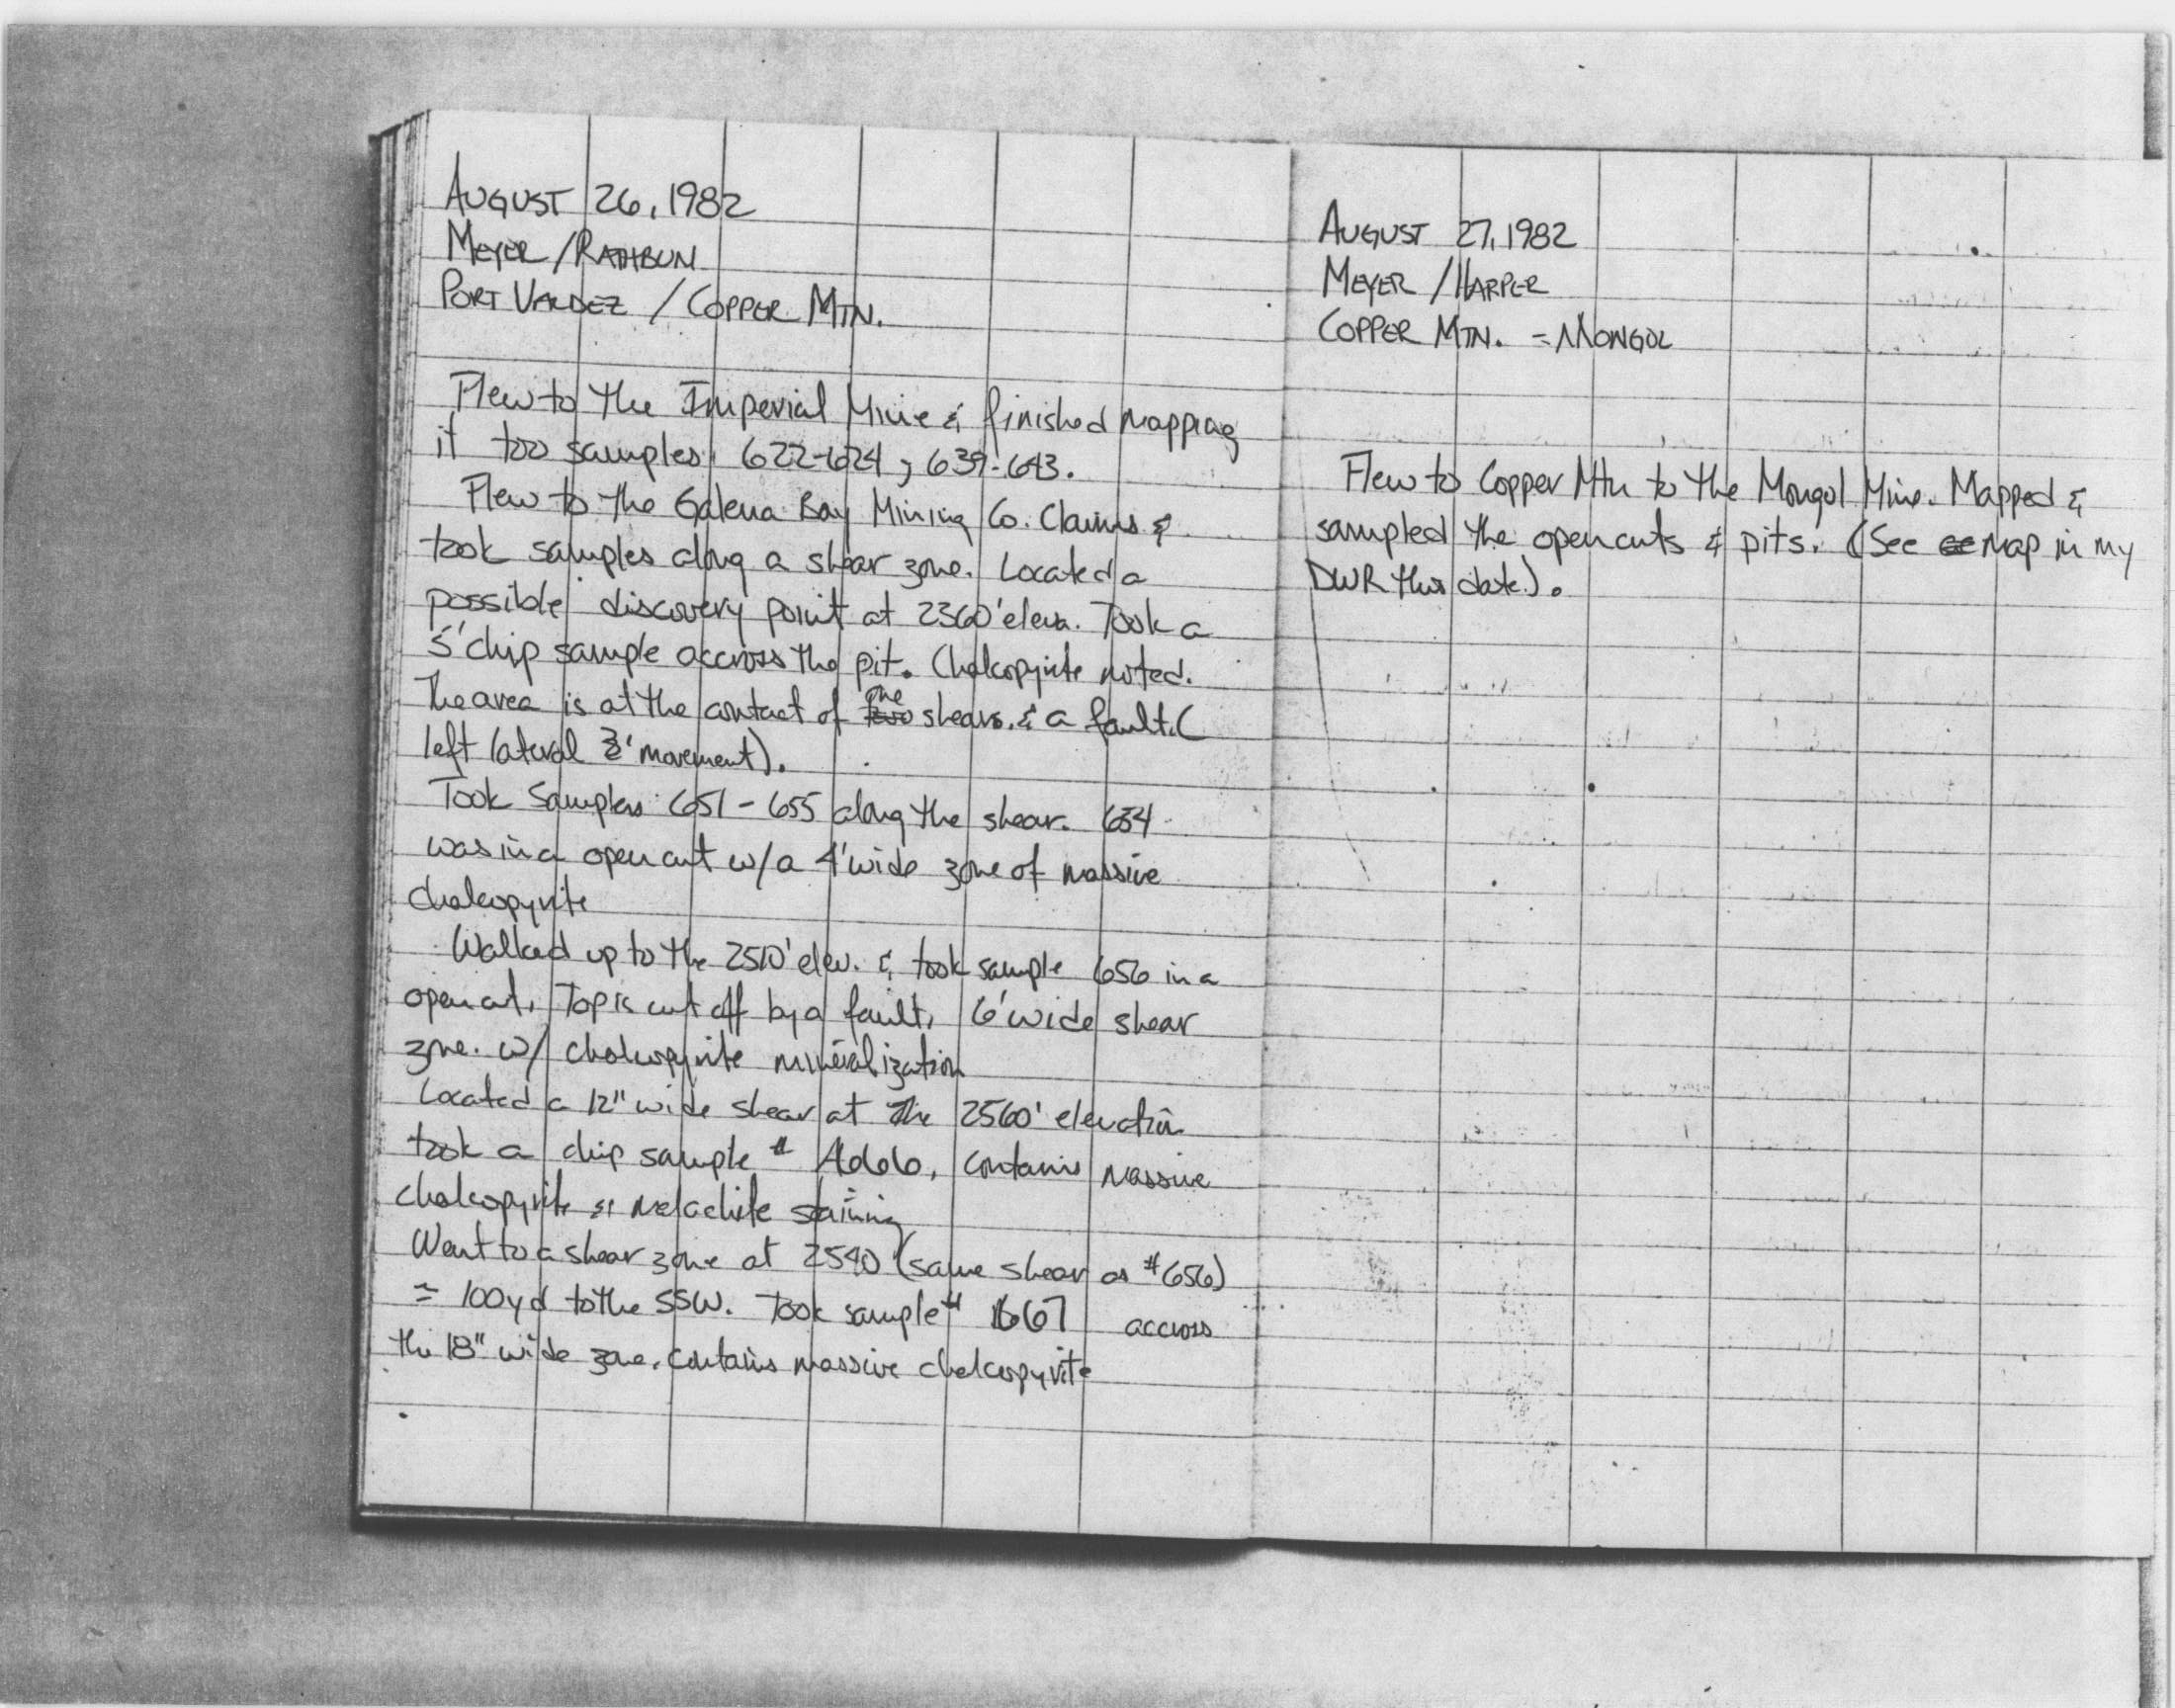 AUGUST 26, 1982
MEYER / RATHBUN
PORT VALDEZ / COPPER MTN.
Flew to the Imperial Mine & finished mapping
it too samples 622-624, 639-643.
Flew to the Galena Bay Mining Co. Claims &
took samples along a shear zone. Located a
possible discovery point at 2360' elev. Took a
5' chip sample accross the pit. Chalcopyrite noted.
The area is at the contact of one shears. & a fault. (
left lateral 3' movement).
Took Samples 651-655 along the shear. 654
was in a open cut w/a 4' wide zone of massive
chalcopyrite
Walked up to the 2510' elev. & took sample 656 in a
open cut. Top is cut off by a fault, 6' wide shear
zone. w/ chalcopyrite mineralization
Located a 12" wide shear at the 2560' elevation
took a chip sample # contains massive
chalcopyrite & melachite staining
Went to a shear zone at 2540 (same shear as #656)
≈ 100yd to the SSW. Took sample # accross
the 18" wide zone. contains massive chalcopyrite
AUGUST 27, 1982
MEYER / HARPER
COPPER MTN. - MONGOL
Flew to Copper Mtn to the Mongol Mine. Mapped &
sampled the opencuts & pits. (See map in my
DWR this date).